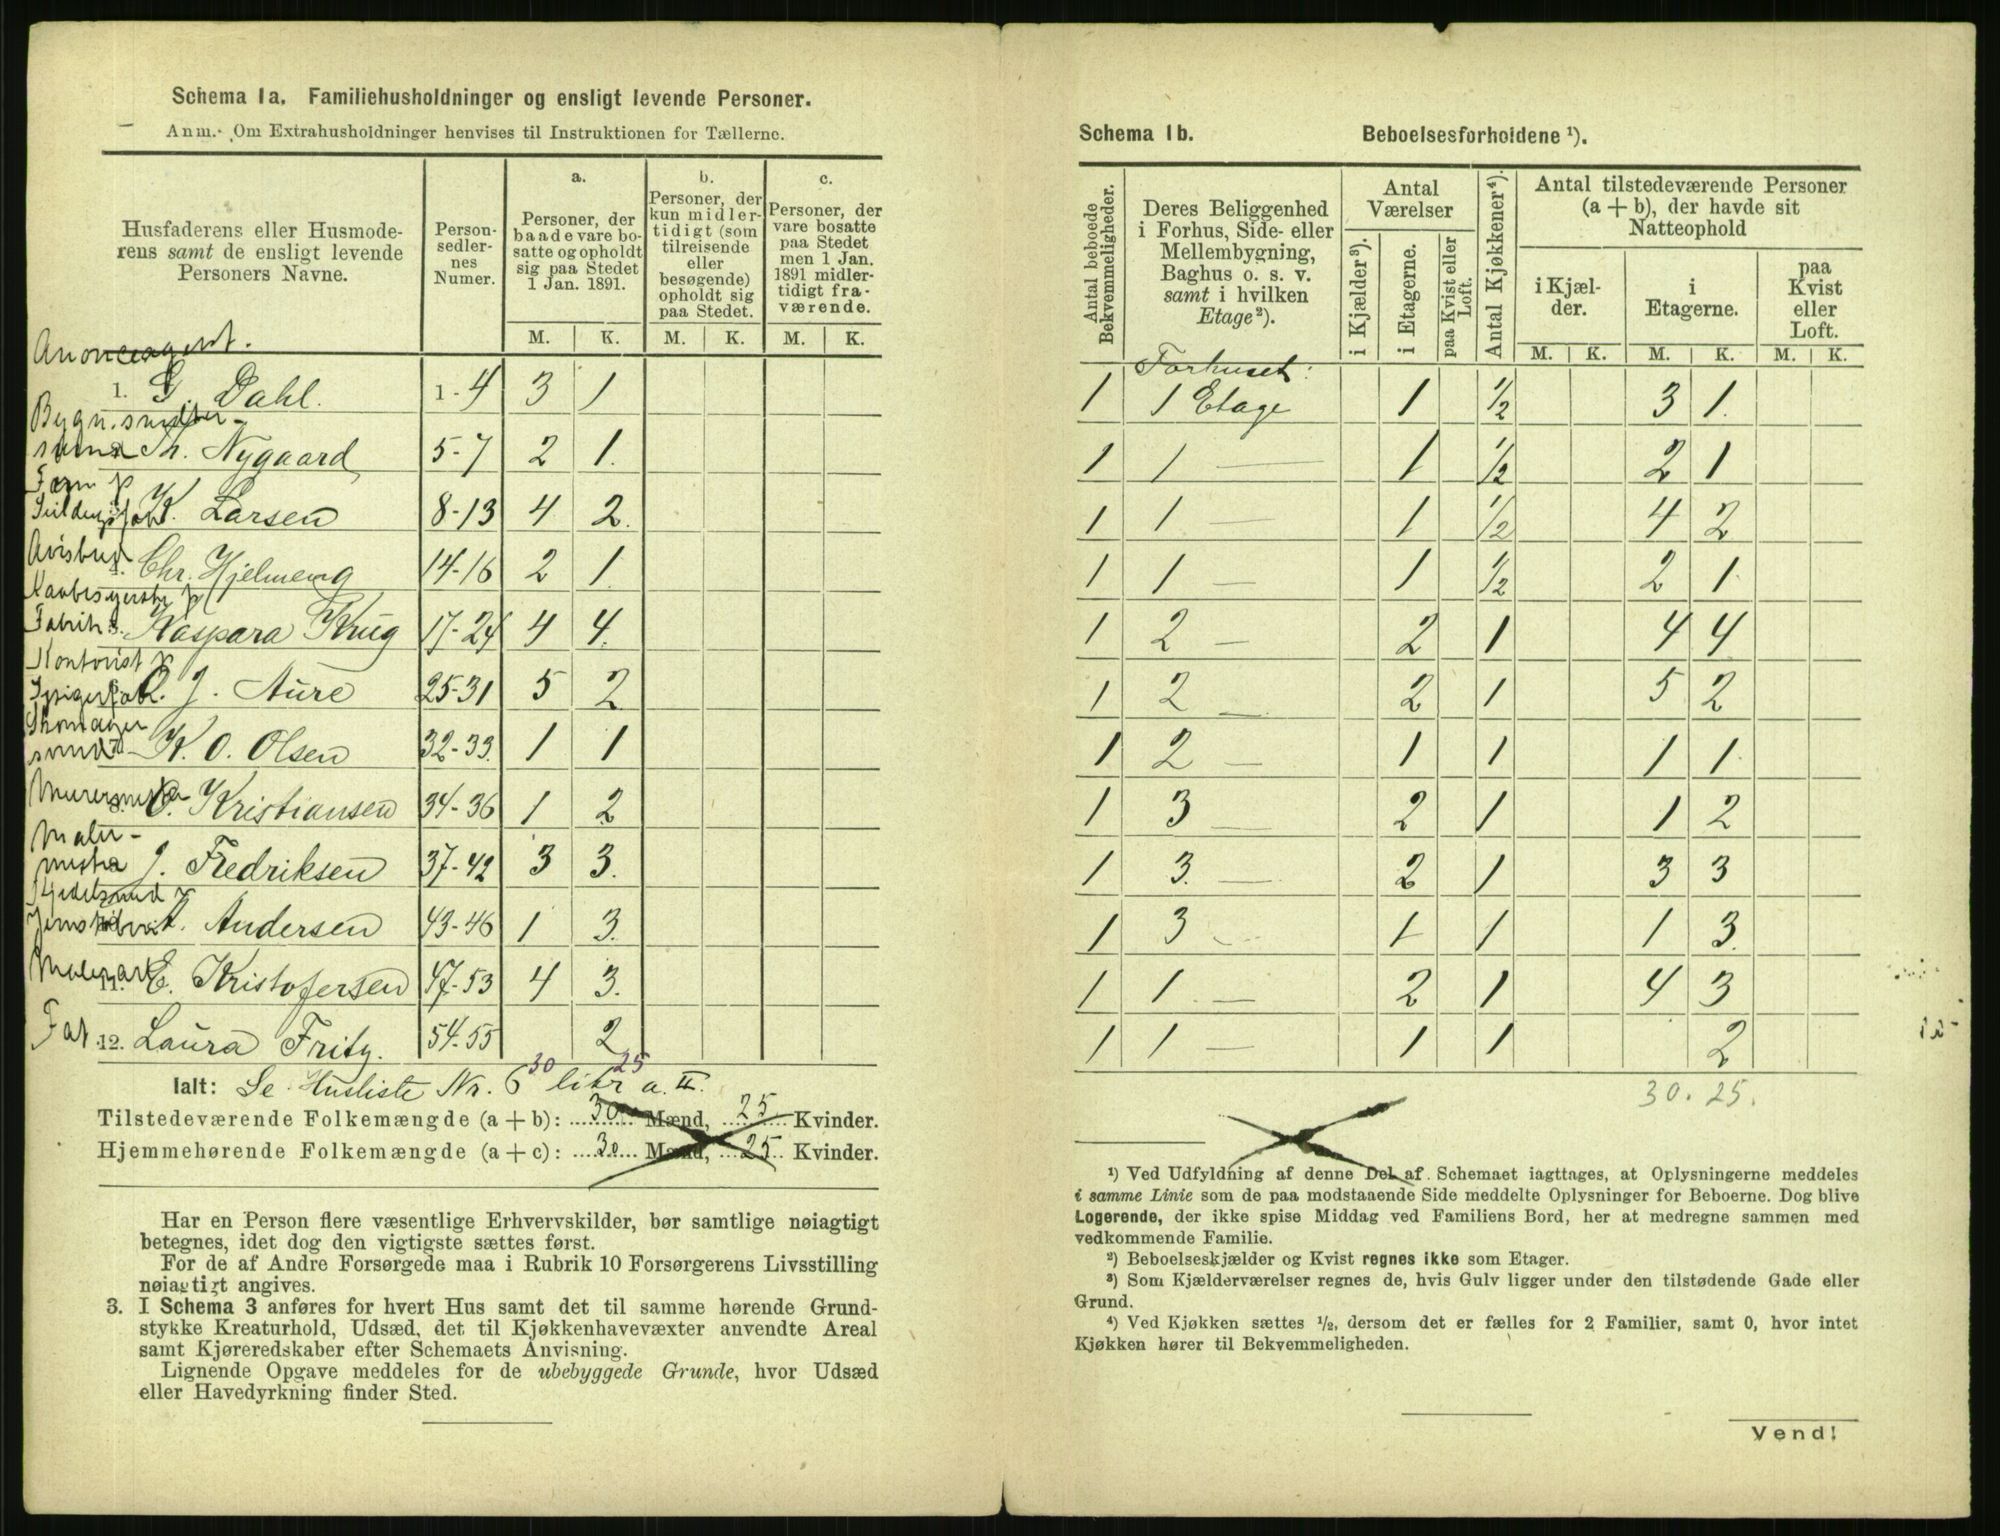 Schema 1a. Familiehusholdninger og ensligt levende Personer.
Anm. Om Extrahusholdninger henvises til Instruktionen for Tællerne.
Husfaderens eller Husmoderens samt de ensligt levende Personers Navne.
Personsedlernes Numer.
a. Personer, der baade vare bosatte og opholdt sig paa Stedet 1 Jan. 1891.
b. Personer, der kun midlertidigt (som tilreisende eller besøgende) opholdt sig paa Stedet.
c. Personer, der vare bosatte paa Stedet men 1 Jan. 1891 midlertidigt fraværende.
M. K. M. K. M. K.
1. G. Dahl. 1-4 3 1
Th. Nygaard 5-7 2 1.
K. Larsen 8-13 4 2.
Avisbud
Chr. Hjelmeng 14-16 2 1.
Fabrik
5. Kaspara Krug 17-24 4 4.
Kontorist p
O. J. Aure 25-31 5 2
Skomager
svend K. O. Olsen 32-33. 1 1
O. Kristiansen 34-36 1 2
Maler-
mester J. Fredriksen 37-42 3 3.
A. Andersen 43-46 1 3.
11. E. Kristofersen 47-53 4 3.
12. Laura Fritz. 54-55 2
30 25
Ialt: Se Husliste Nr. 6 litr a. II.
Tilstedeværende Folkemængde (a + b): 30 Mænd, 25 Kvinder.
Hjemmehørende Folkemængde (a + c): 30 Mænd, 25 Kvinder.
Har en Person flere væsentlige Erhvervskilder, bør samtlige nøiagtigt
betegnes, idet dog den vigtigste sættes først.
For de af Andre Forsørgede maa i Rubrik 10 Forsørgerens Livsstilling
nøiagtigt angives.
3. I Schema 3 anføres for hvert Hus samt det til samme hørende Grund-
stykke Kreaturhold, Udsæd, det til Kjøkkenhavevæxter anvendte Areal
samt Kjøreredskaber efter Schemaets Anvisning.
Lignende Opgave meddeles for de ubebyggede Grunde, hvor Udsæd
eller Havedyrkning finder Sted.
Schema 1b. Beboelsesforholdene ¹).
Antal beboede Bekvemmeligheder.
Deres Beliggenhed i Forhus, Side- eller Mellembygning, Baghus o. s. v. samt i hvilken Etage²).
Antal Værelser
i Kjælder³).
i Etagerne.
paa Kvist eller Loft.
Antal Kjøkkener⁴).
Antal tilstedeværende Personer (a + b), der havde sit Natteophold
i Kjælder.
i Etagerne.
paa Kvist eller Loft.
M. K. M. K. M. K.
Forhuset:
1 1 Etage 1 ½ 3 1.
1 1 — 1 ½ 2 1
1 1 — 1 ½ 4 2
1 1 — 1 ½ 2 1
1 2 — 2 1 4 4
1 2 — 2 1 5 2
1 2 — 1 1 1 1.
1 3 — 2 1 1 2
1 3. — 2 1 3 3
1 3 — 1 1 1 3.
1 1. — 2 1 4 3
1 1 — 1 1 2
30. 25.
¹) Ved Udfyldning af denne Del af Schemaet iagttages, at Oplysningerne meddeles
i samme Linie som de paa modstaaende Side meddelte Oplysninger for Beboerne. Dog blive
Logerende, der ikke spise Middag ved Familiens Bord, her at medregne sammen med
vedkommende Familie.
²) Beboelseskjælder og Kvist regnes ikke som Etager.
³) Som Kjælderværelser regnes de, hvis Gulv ligger under den tilstødende Gade eller
Grund.
⁴) Ved Kjøkken sættes ½, dersom det er fælles for 2 Familier, samt 0, hvor intet
Kjøkken hører til Bekvemmeligheden.
Vend!